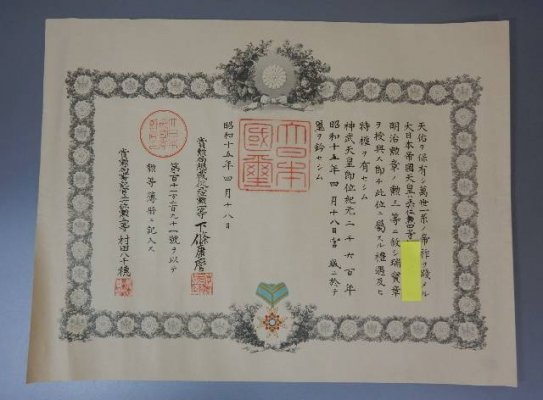 天佑ヲ保有シ萬世一系ノ帝祚ヲ踐メル
大日本帝國天皇ハ 位勲四等
明治勲章ノ勲三等ニ敍シ瑞寶章
ヲ授與ス即チ此位ニ屬スル禮遇及ヒ
特權ヲ有セシム
神武天皇即位紀元二千六百年
昭和十五年四月十八日宮城ニ於テ
璽ヲ鈐セシム
大日本國璽
昭和十五年四月十八日
賞勲局總裁 勲二等下條康麿
號ヲ以テ
勲等簿冊ニ記入ス
賞勲局書記官 村田八十穂